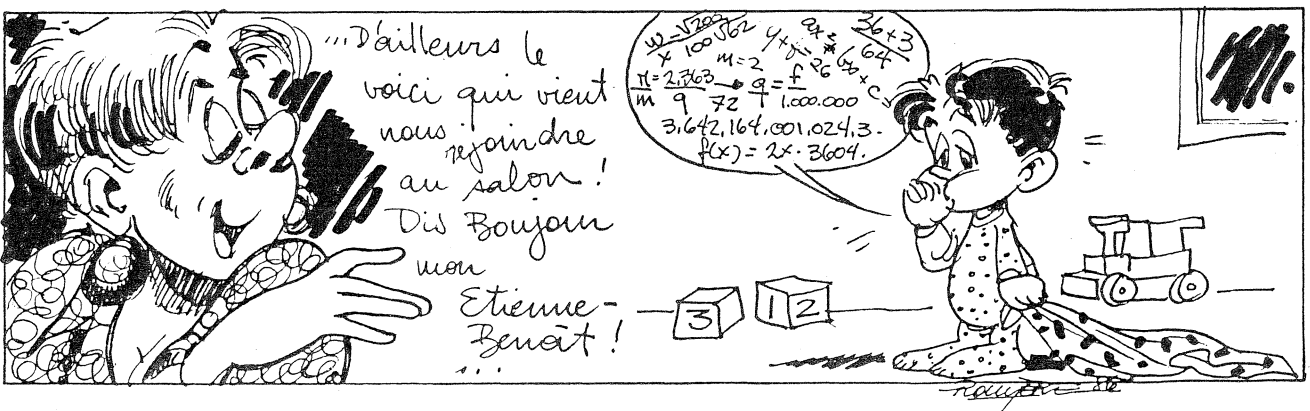 ...D'ailleurs le
voici qui vient
nous rejoindre
au salon !
Dis Bonjour
mon
Etienne-
Benoît !
...
36+3
64
m=2
2,763
9
72
9 = f
1 1.000.000
3,642,164,001,024,3.
f(x) = 2x · 3604.
3
1 2